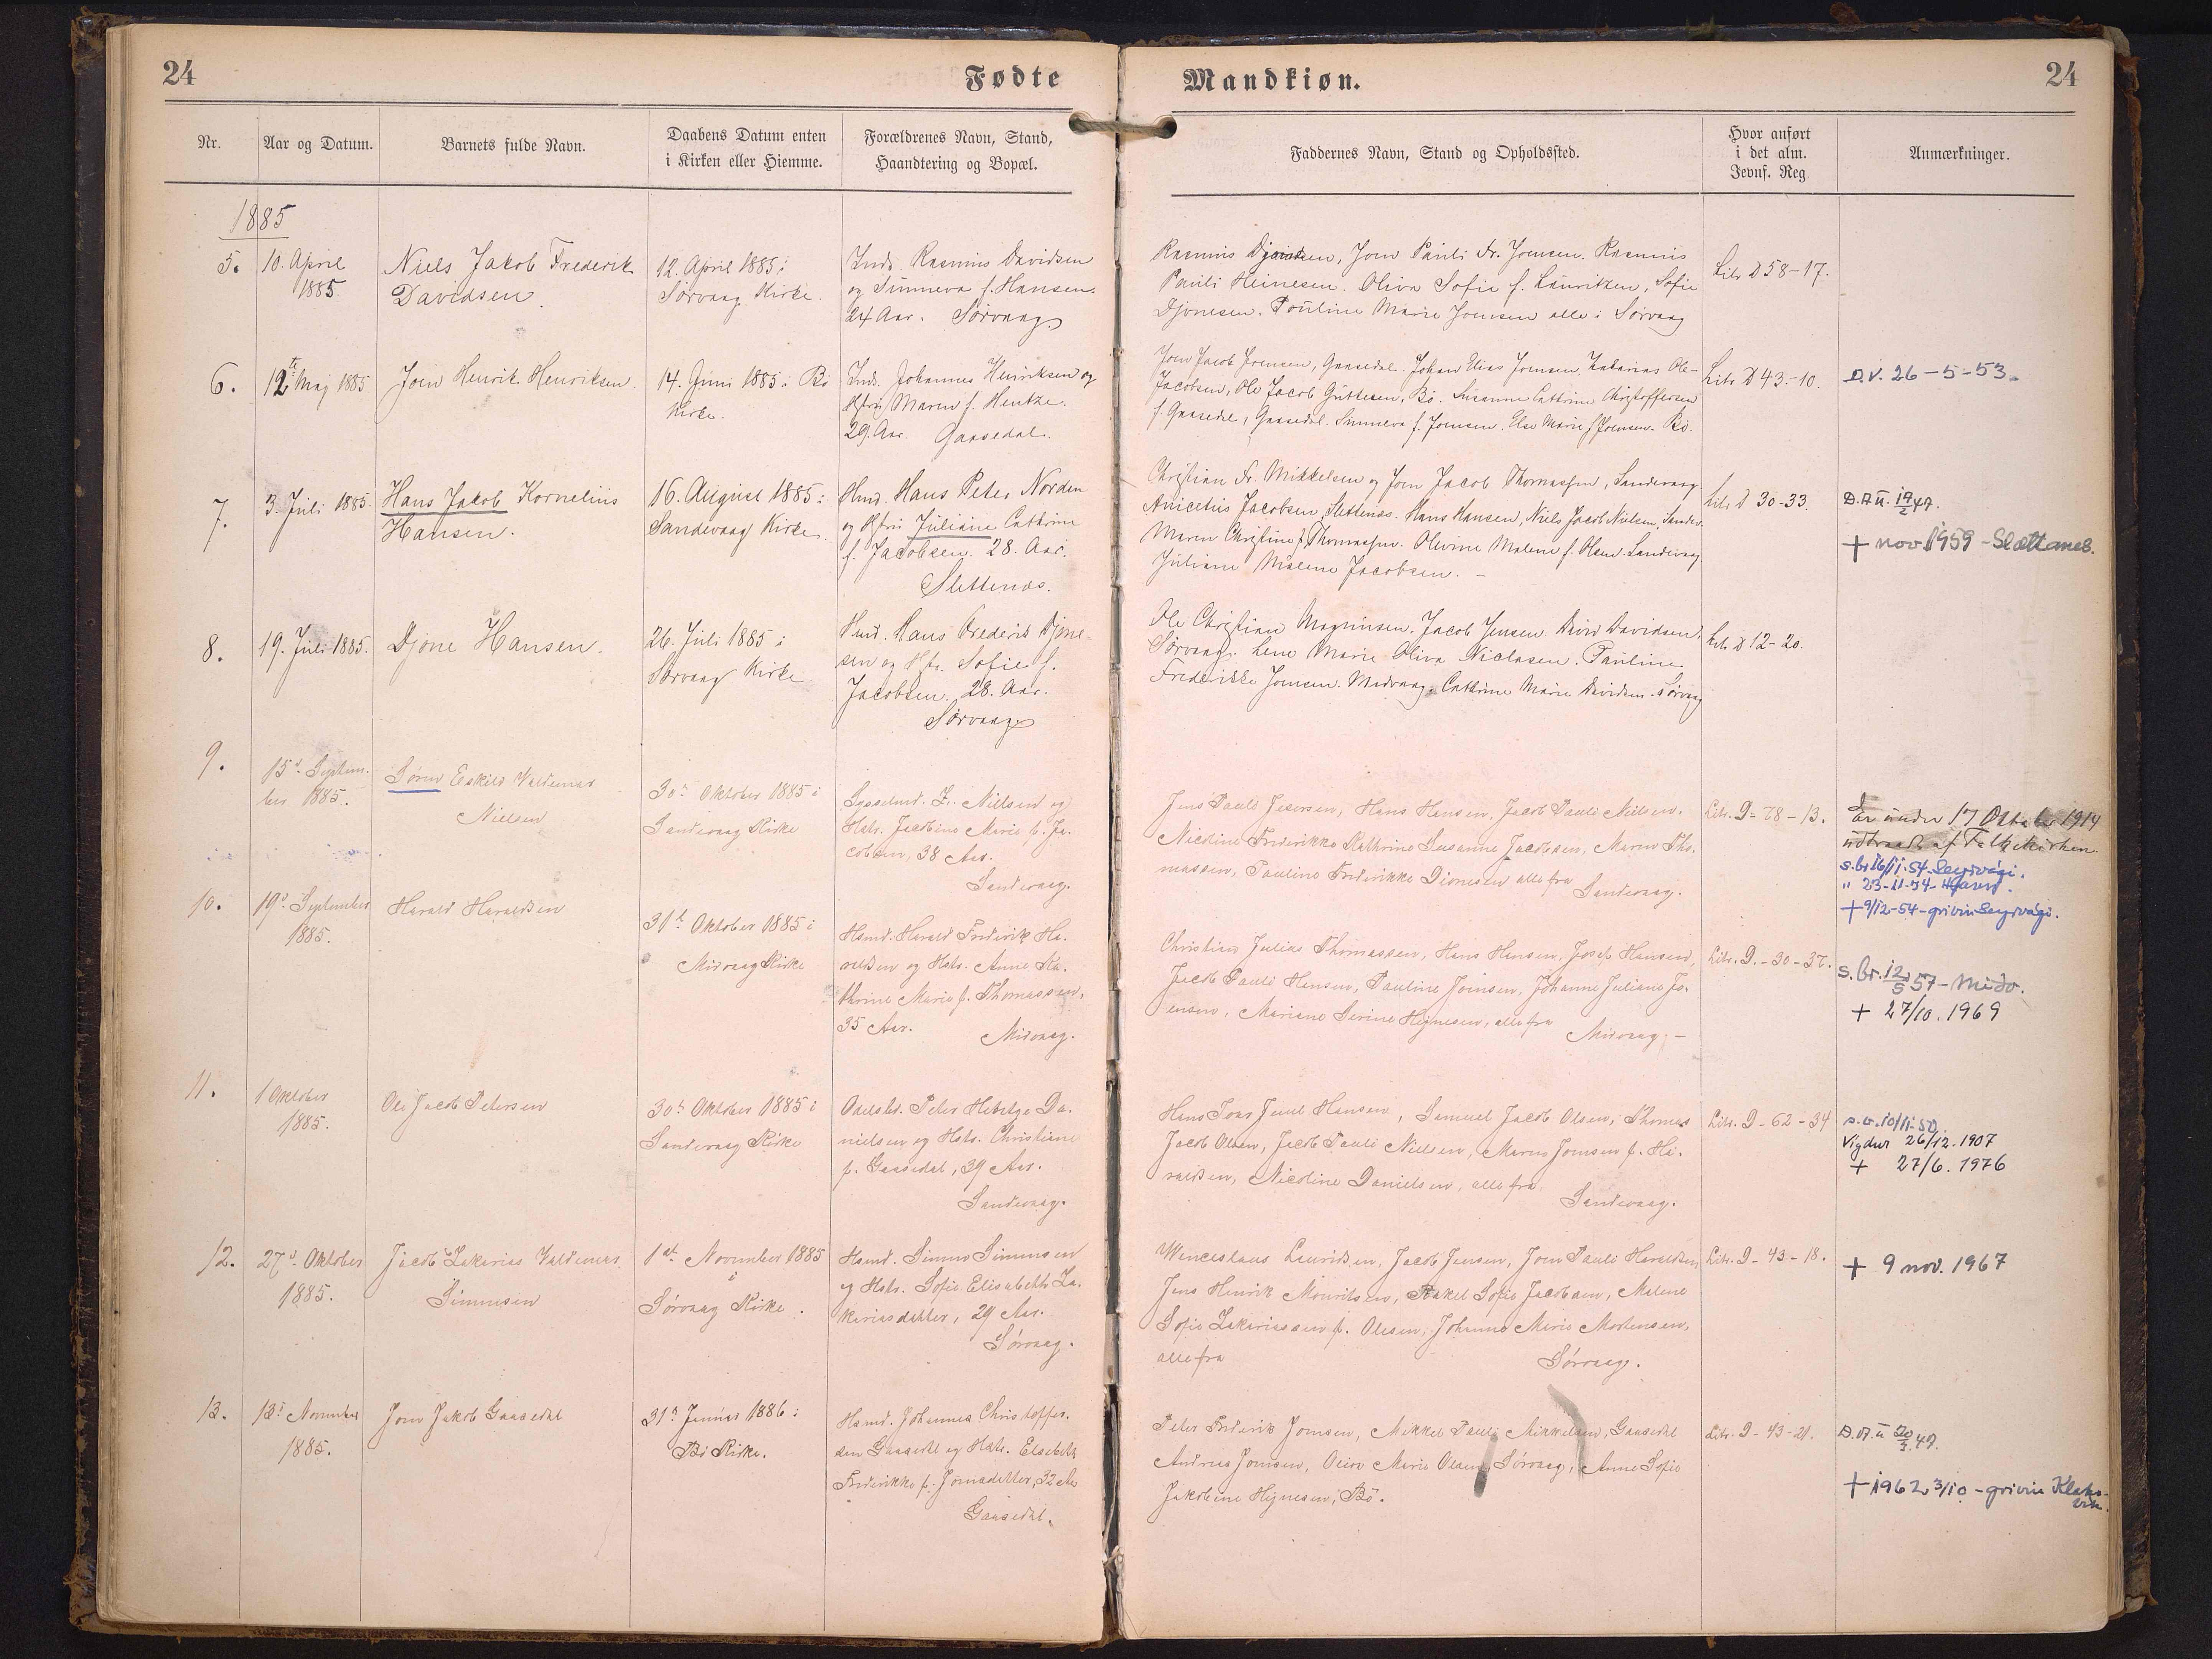 24
Fødte
Mandkiøn.
24
Nr.
Aar og Datum.
Barnets fulde Navn.
Daabens Datum enten
i Kirken eller Hiemme.
Forældrenes Navn, Stand,
Haandtering og Bopæl.
Faddernes Navn, Stand og Opholdssted.
Hvor anført
i det alm.
Jevnf. Reg.
Anmærkninger.
1885
5.
10. April
1885.
Niels Jakob Frederik
Davidsen.
12. April 1885 i
Sørvaag Kirke.
Inds. Rasmus Davidsen
og Sunneva f. Hansen.
24 Aar. Sørvaag
Rasmus Djonesen, Joen Pauli Fr. Joensen. Rasmus
Pauli Heinesen. Oliva Sofie f. Lauritzen, Sofie
Djonesen. Pauline Marie Joensen alle i Sørvaag
Litr. D 58-17.
6.
12te Maj 1885
Joen Henrik Henriksen.
14. Juni 1885 i Bø
Kirke.
Inds. Johannes Henriksen og
Hstru Maren f. Hentze.
29. Aar. Gaasedal.
Joen Jacob Joensen, Gaasedal. Johan Elias Joensen, Zakarias Ole-
Jacobsen, Ole Jacob Guttesen, Bø. Susanne Cathrine Christoffersen
f. Gaasedal, Gaasedal. Sunneva f. Joensen. Else Marie f. Joensen. Bø.
Litr. D 43.-10.
D.V. 26-5-53.
7.
3. Juli 1885.
Hans Jakob Kornelius
Hansen.
16. August 1885 i
Sandevaag Kirke.
Hmd. Hans Peter Norden
og Hstru Juliane Cathrine
f. Jacobsen. 28. Aar.
Slettenæs.
Christian Fr. Mikkelsen og Joen Jacob Thomassen, Sandevaag.
Anicetius Jacobsen, Slettenæs. Hans Hansen, Niels Jacob Nielsen, Sandev.
Maren Christine f. Thomassen. Olivine Malene f. Olsen Sandevaag
Juliane Malene Jacobsen. -
Litr. D 30-33.
D.A ū. 19/2 47.
+ nov 1959 - Slættanes.
8.
19. Juli 1885.
Djone Hansen.
26. Juli 1885 i
Sørvaag Kirke
Hmd. Hans Frederik Djone-
sen og Hstr. Sofie f.
Jacobsen. 28. Aar.
Sørvaag
Ole Christian Magnusen. Jacob Jensen. David Davidsen,
Sørvaag. Lene Marie Oliva Niclasen. Pauline
Frederikke Joensen. Midvaag. Cathrine Marie Davidsen. Sørvaag
Litr. D 12-20.
9.
15d. Septem-
ber 1885.
Søren Eskild Valdemar
Nielsen
30te Oktober 1885 i
Sandevaag Kirke
Sysselmd. Z. Nielsen og
Hstr. Jacobine Marie f. Ja-
cobsen, 38 Aar.
Sandevaag.
Jens Pauli Petersen, Hans Hansen, Jacob Pauli Nielsen.
Nicoline Frederikke Kathrine Susanne Jacobsen, Maren Tho-
massen, Pauline Frederikke Dionesen alle fra
Sandevaag.
Litr. D-78-13.
Er under 17 Oktober 1914
udtraadt af Folkekirken.
s.br. 16/11-54 Seyrvági.
" 23-11-54-
+ 9/12-54-grivin Seyrvági.
10.
19d. September
1885.
Harald Haraldsen
31t Oktober 1885 i
Midvaag Kirke
Hsmd. Harald Frederik Ha-
raldsen og Hstr. Anne Ka-
thrine Marie f. Thomassen,
35 Aar.
Midvaag.
Christian Julius Thomassen, Hans Hansen, Josef Hansen,
Jacob Pauli Hansen, Pauline Joensen, Johanne Juliane Jo-
ensen, Mariane Serine Hejnesen, alle fra
Midvaag. -
Litr. D.-30-37.
s.br. 12/5 57 - Midv.
+ 27/10. 1969
11.
1 Oktober
1885.
Ole Jacob Petersen
30te Oktober 1885 i
Sandevaag Kirke
Odelsbd. Peter Da-
nielsen og Hstr. Christiane
f. Gaasedal, 39 Aar.
Sandevaag.
Hans Juul Hansen, Samuel Jacob Olsen, Thomas
Jacob Olsen, Jacob Pauli Nielsen, Maren Joensen f. Ha-
raldsen, Nicoline Danielsen, alle fra
Sandevaag.
Litr. D-62-34
10/11-50.
Vigdur 26/12. 1907
+ 27/6. 1976
12.
27d. Oktober
1885.
Jacob Zakarias Valdemar
Simonsen
1st. November 1885
i
Sørvaag Kirke.
Hsmd. Simun Simonsen
og Hstr. Sofie Elisabeth Za-
kariasdatter, 29 Aar.
Sørvaag.
Wenceslaus Lauridsen, Jacob Jensen, Joen Pauli Haraldsen
Jens Henrik Mouritsen, Rakel Sofie Jacobsen, Malene
Sofie Zakariassen f. Olesen, Johanne Marie Mortensen,
alle fra
Sørvaag.
Litr. D-43-18.
+ 9 nov. 1967
13.
13d November
1885.
Joen Jakob Gaasedal
31t Januar 1886 i
Bø Kirke.
Hsmd. Johannes Christoffer-
sen Gaasedal og Hstr. Elsebeth
Frederikke f. Joensdatter, 32 Aar
Gaasedal.
Peter Frederik Joensen, Mikkel Pauli Mikkelsen, Gaasedal
Andrea Joensen, Marie Olsen, Sørvaag, Anne Sofie
Jakobine Hejnesen, Bø.
Litr. D-43-21.
D.A. ū 20/2. 47.
+ 1962 3/10 - grivin Klaks-
vik.